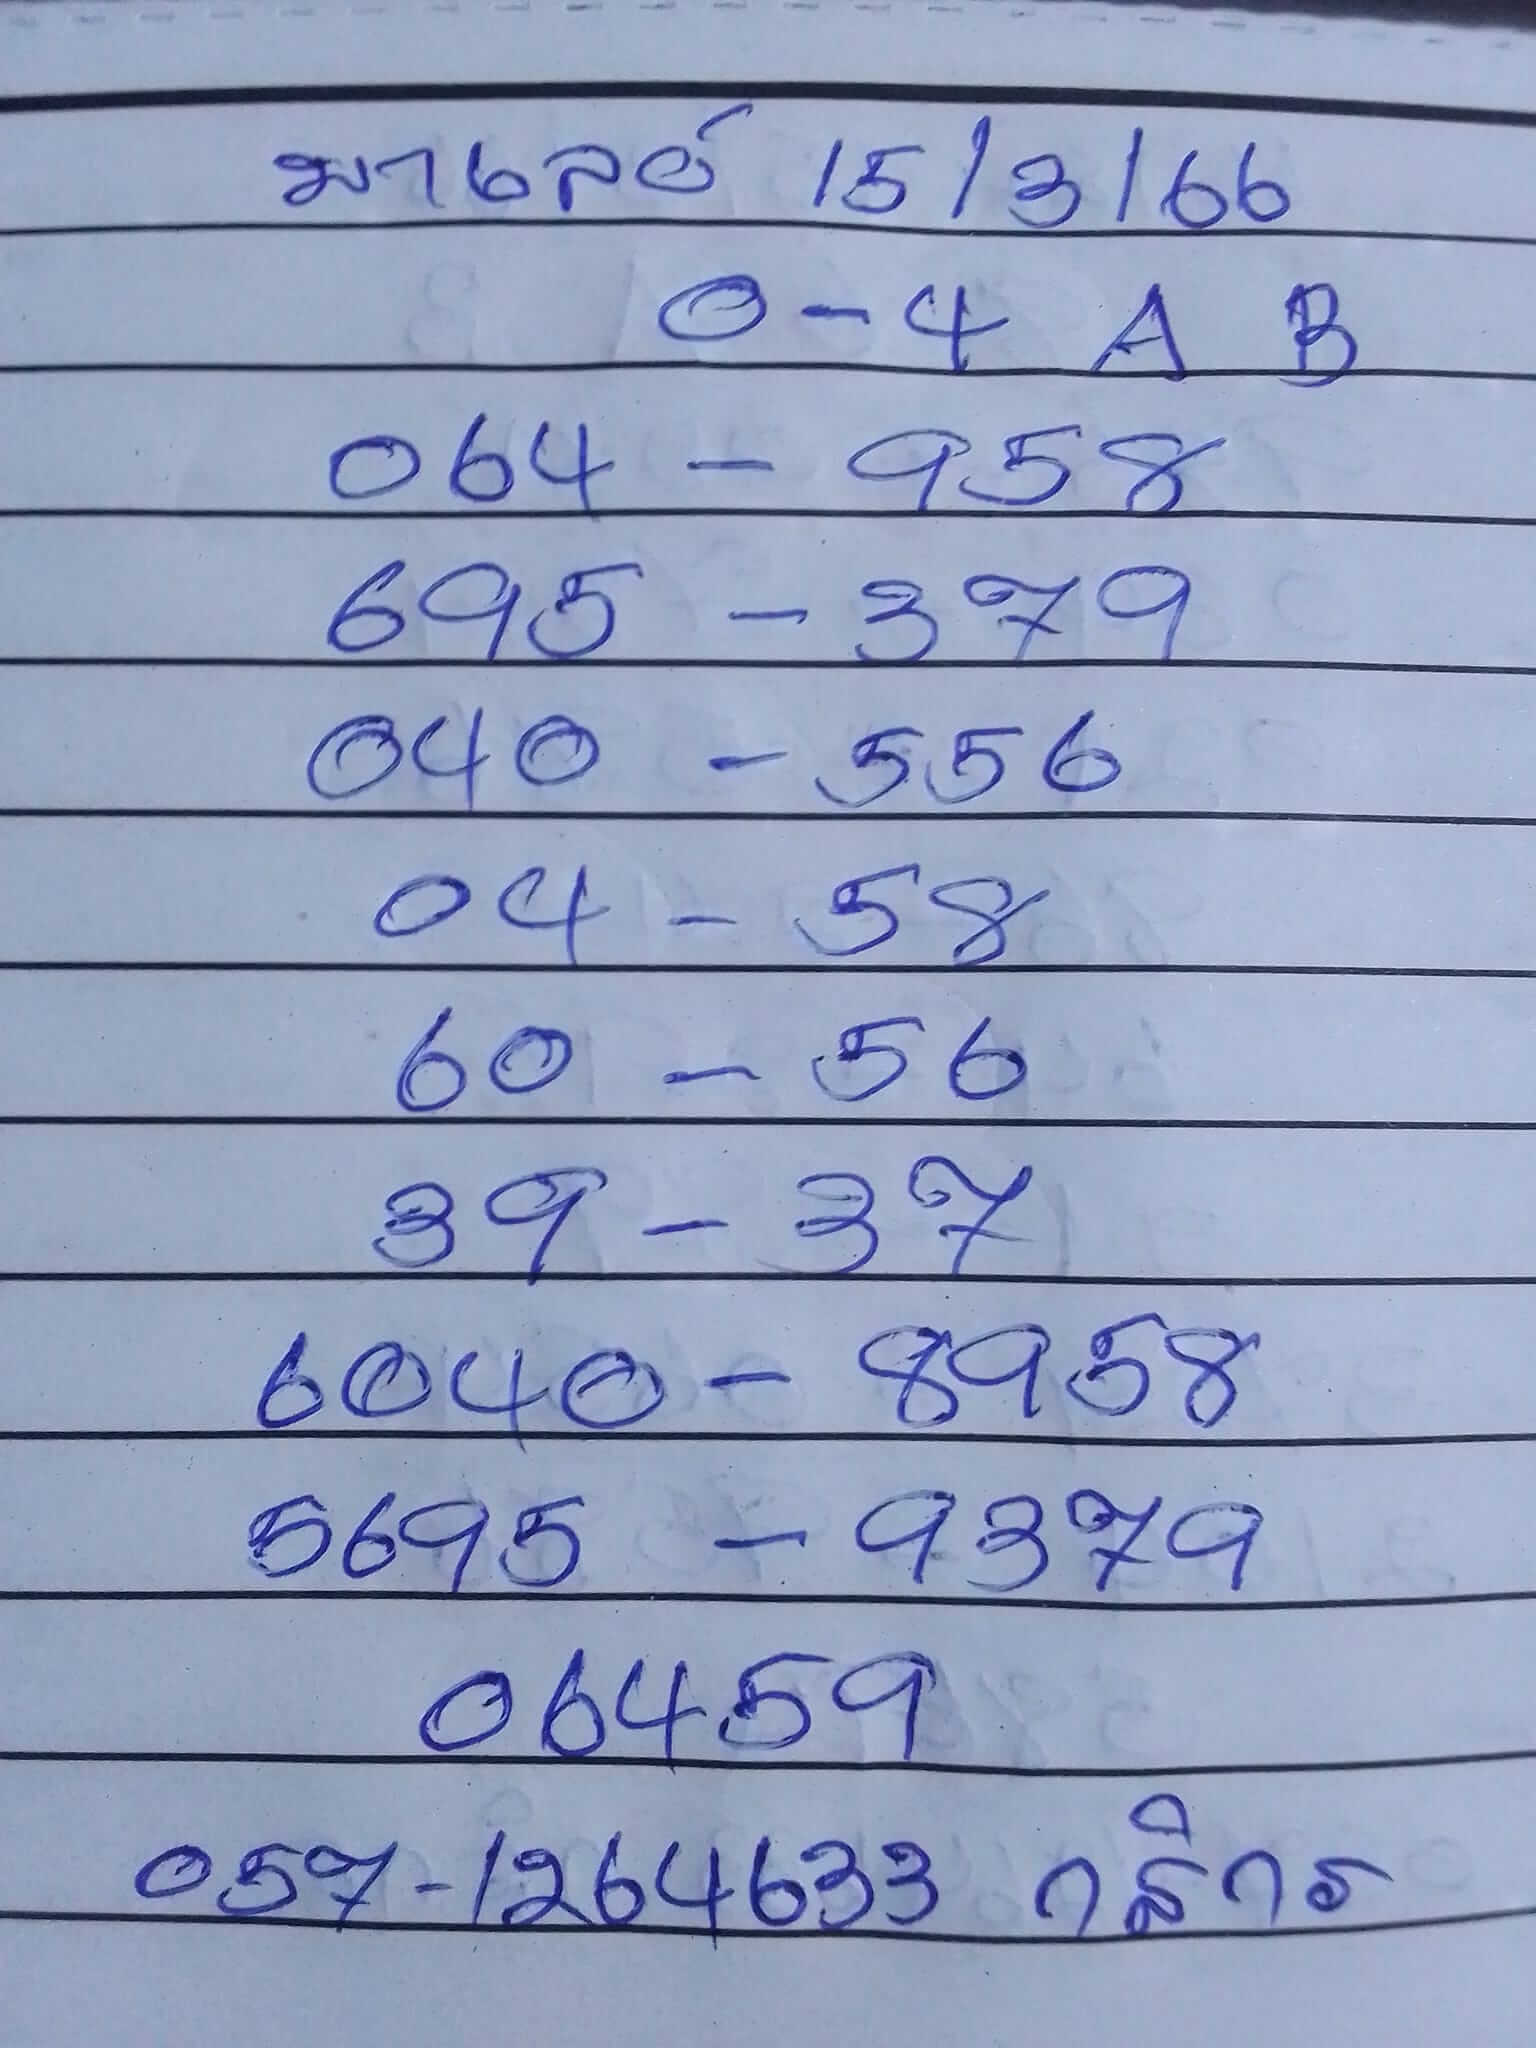 มาเลย์ 15/3/66
0-4 A B
064 - 958
695 - 379
040 - 556
04 - 58
60 - 56
39 - 37
6040 - 8958
5695 - 9379
06459
057-1264633 กสิกร